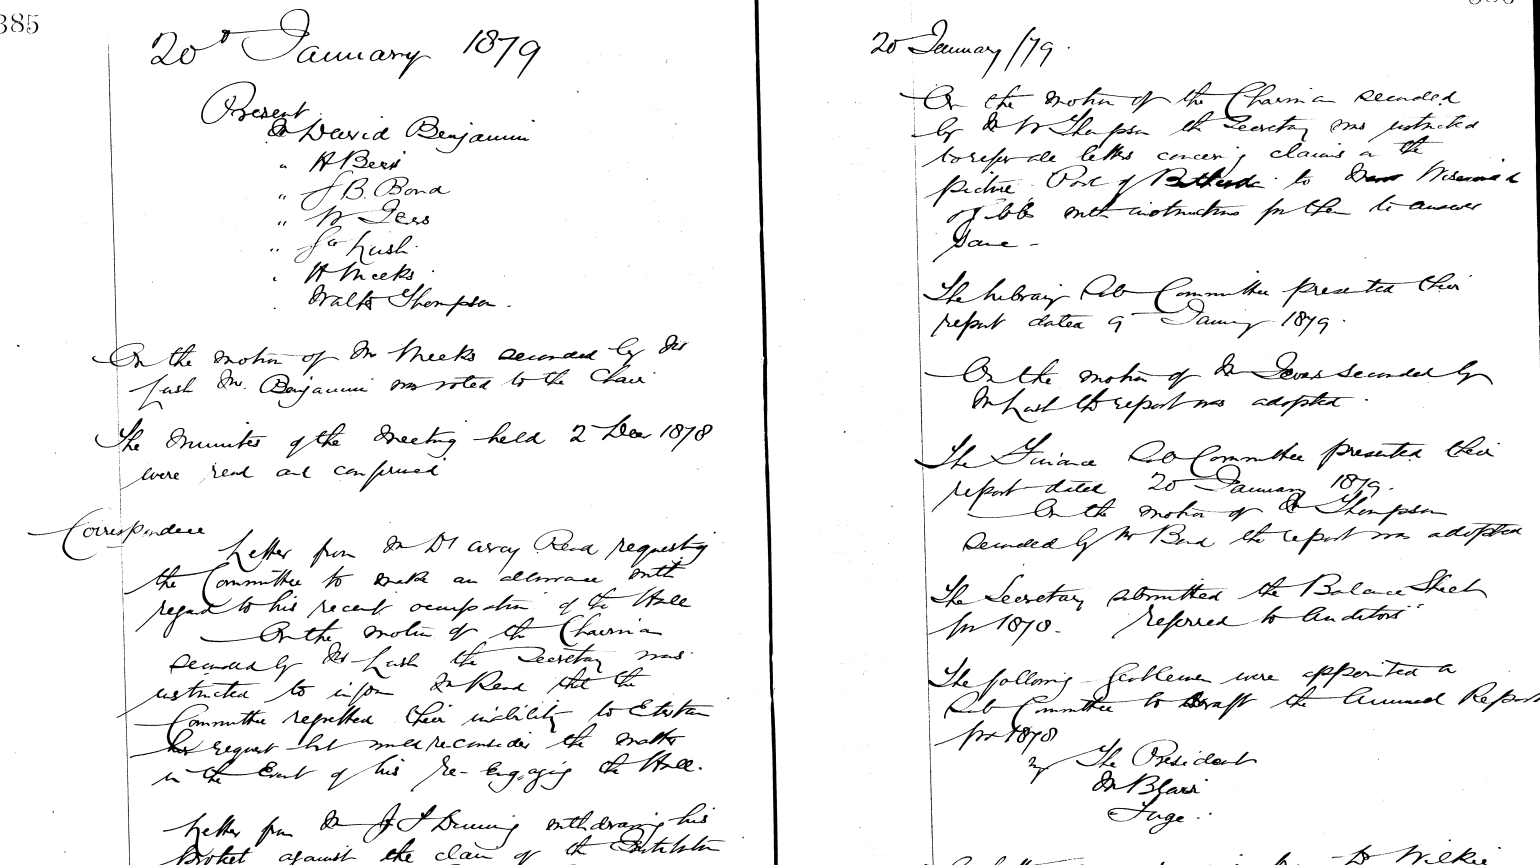 385
20 January 1879
Present
Mr David Benjamin
" H Beri
" J B Bond
" W Ievers
" Jas Lush
" H Meeks
Walter Thompson.
On the motion of Mr Meeks seconded by Mr
Lush Mr. Benjamin was voted to the Chair
The Minutes of the Meeting held 2 Dec 1878
were read and confirmed
Correspondence
Letter from Mr D'Arcy Read requesting
the Committee to make an allowance with
regard to his recent occupation of the Hall
On the motion of the Chairman
seconded by Mr Lush the Secretary was
instructed to inform Mr Read that the
Committee regretted their inability to Entertain
his request but would reconsider the matter
in the Event of his re-engaging the Hall.
Letter from Mr J S Dunning withdrawing his
Protest against the claim of the Institution
20 January /79.
On the motion of the Chairman seconded
by Mr W Thompson the Secretary was instructed
to refer all letters concerning claims on the
picture Pool of Bethesda to
of bb with instructions for them to answer
same -
The Library Sub Committee presented their
report dated 9 January 1879.
On the motion of Mr Ievers seconded by
Mr Lush the report was adopted.
The Finance Sub Committee presented their
report dated 20 January 1879.
On the motion of Mr Thompson
seconded by Mr Bond the report was adopted
The Secretary submitted the Balance Sheet
for 1878. "Referred to Auditors"
The following Gentlemen were appointed a
Sub Committee to draft the Annual Report
for 1878
The President
Mr Blair
Dr Wilkie